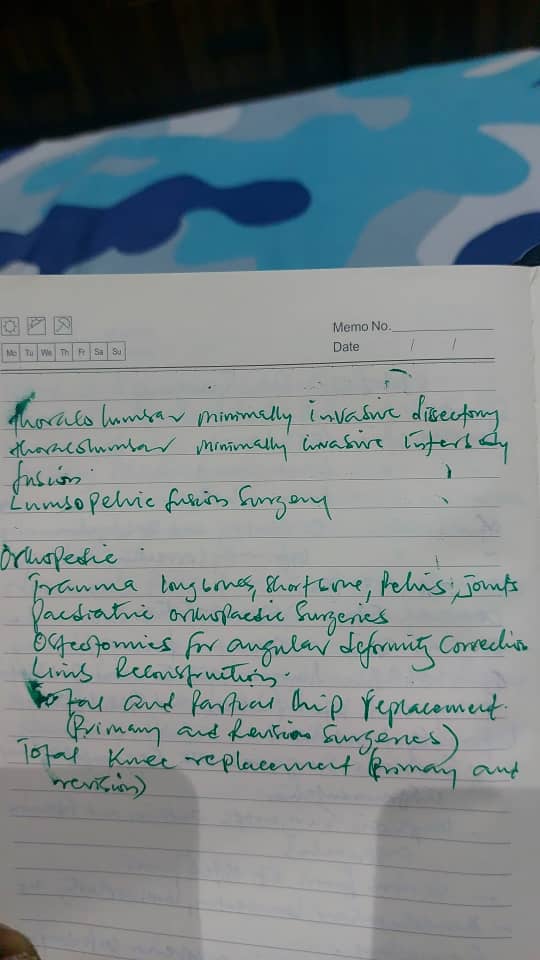 Memo No.
Mo Tu We Th Fr Sa Su
Date / /
thoraco lumbar minimally invasive discectomy
thoracolumbar minimally invasive interbody
fusion.
Lumbopelvic fusion Surgery
Orthopedic
Trauma long bones, short bone, Pelvis, joints
Paediatric orthopaedic Surgeries
Osteotomies for angular deformity Correction
Limb Reconstruction.
Total and Partial hip replacement.
(Primary and Revision Surgeries)
Total Knee replacement (Primary and
revision)